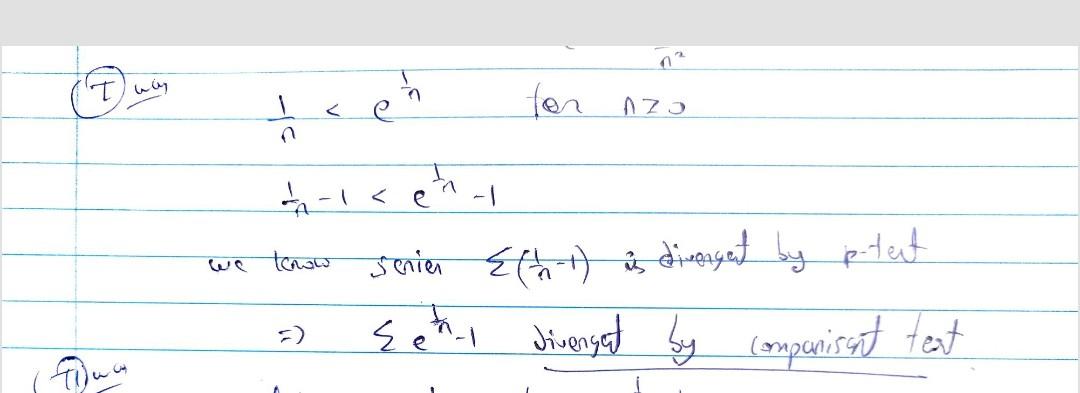 n²
(I) way 1/n < e^(1/n) for n≥0
1/n - 1 < e^(1/n) - 1
we know series Σ(1/n - 1) is divergent by p-test
=> Σ e^(1/n) - 1 divergent by comparisant test
(II) way